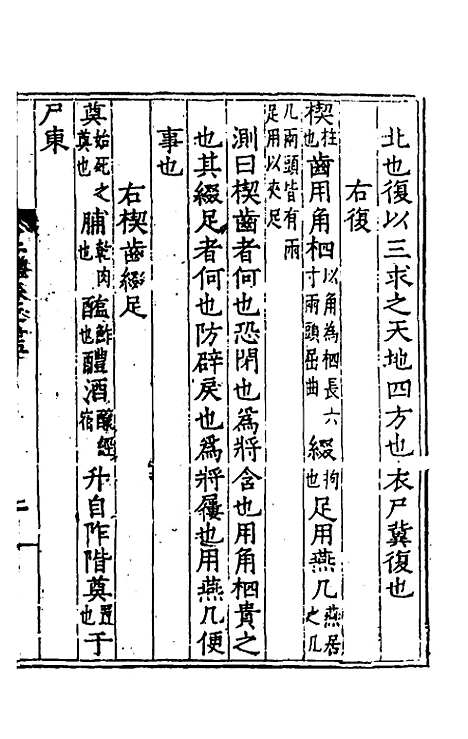 北也復以三求之天地四方也衣尸冀復也
右復
楔柱也齒用角柶以角為柶長六寸兩頭屈曲綴拘也足用燕几燕居之几
几兩頭皆有兩足用以夾足
測曰楔齒者何也恐閉也為將含也用角柶貴之
也其綴足者何也防辟戾也為將屨也用燕几便
事也
右楔齒綴足
奠始死之奠也脯乾肉也醢鮓也醴酒釀經宿升自阼階奠置也于
尸東
二